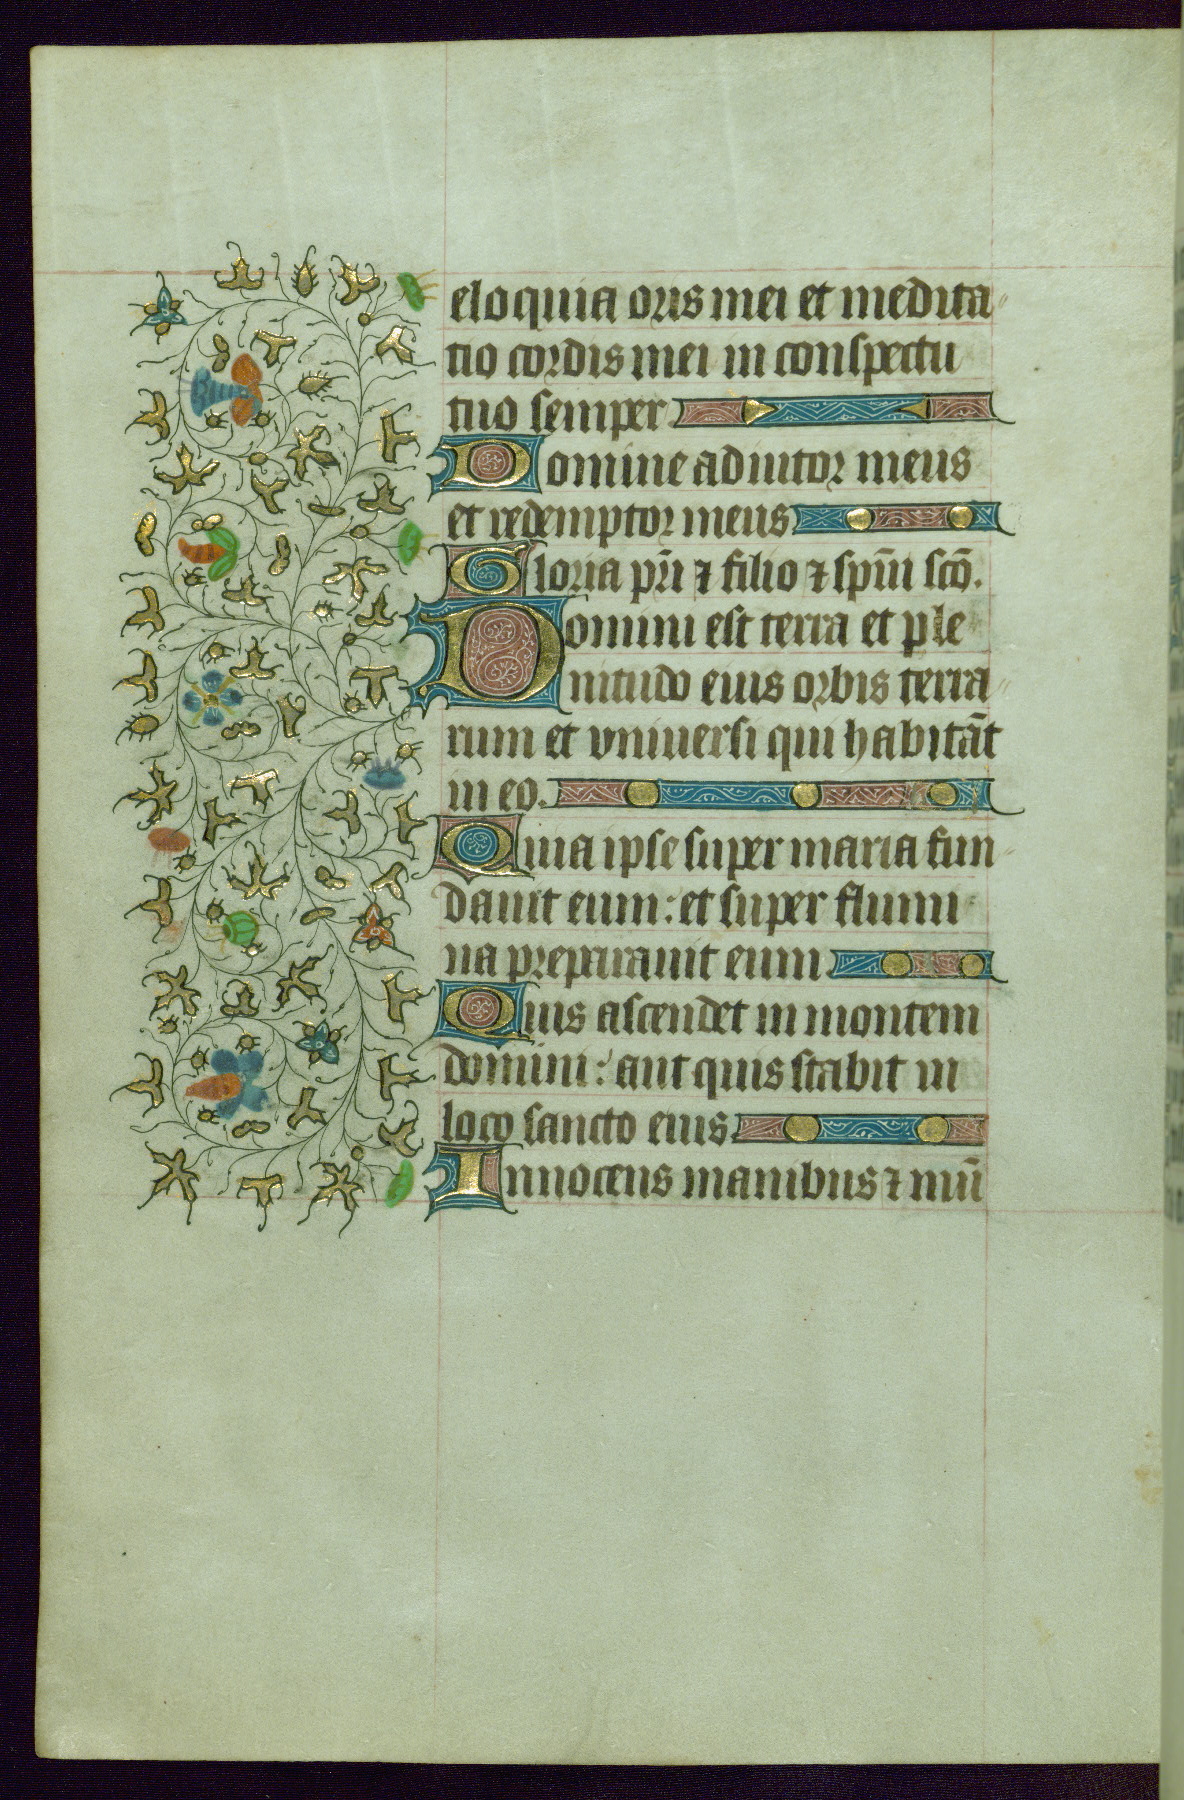 eloquia oris mei et medita
tio cordis mei in conspectu
tuo semper
Domine adiutor meus
et redemptor meus
Gloria pr̄i ⁊ filio ⁊ spūi sc̄o.
Domini est terra et ple
nitudo eius orbis terra
rum et vniuersi qui habitāt
in eo.
Quia ipse super maria fun
dauit eum: et super flumi
na preparauit eum
Quis ascendet in montem
domini: aut quis stabit in
loco sancto eius
Innocens manibus ⁊ mū